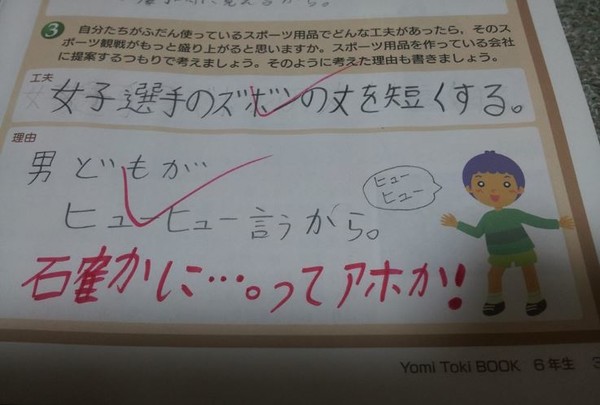 ③ 自分たちがふだん使っているスポーツ用品でどんな工夫があったら、そのス
ポーツ観戦がもっと盛り上がると思いますか。スポーツ用品を作っている会社
に提案するつもりで考えましょう。そのように考えた理由も書きましょう。
工夫
女子選手のズボンの丈を短くする。
理由
男どもが
ヒューヒュー言うから。
ヒュー
ヒュー
石崔かに…。ってアホか!
Yomi Toki BOOK 6年生 3